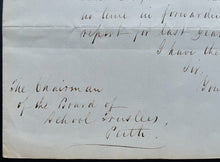 no time in forwarding
report for last year
I have the
Sir,
You
The Chairman
of the Board of
School Trustees,
Perth.